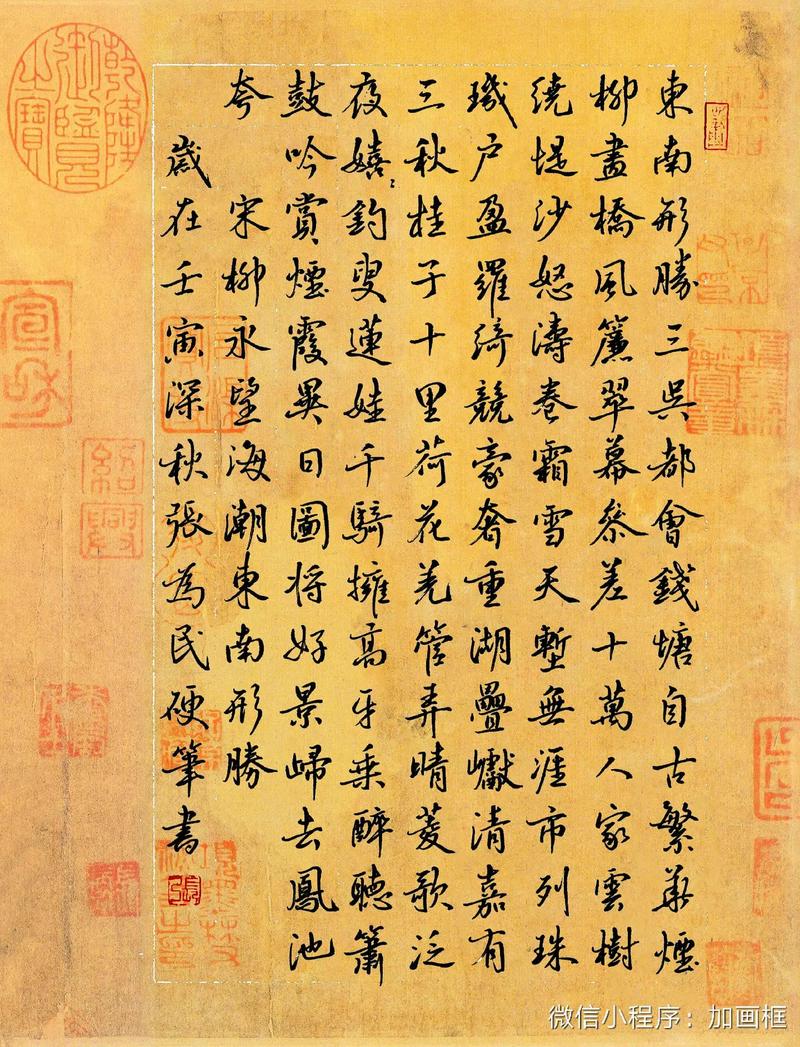 東南形勝三吳都會錢塘自古繁華煙
柳畫橋風簾翠幕叅差十萬人家雲樹
繞堤沙怒濤卷霜雪天塹無涯市列珠
璣户盈羅綺競豪奢重湖疊巘清嘉有
三秋桂子十里荷花羌管弄晴菱歌泛
夜嬉〻釣叟蓮娃千騎擁高牙乘醉聽簫
鼓吟賞煙霞異日圖将好景歸去鳳池
夸 宋柳永望海潮東南形勝
歲在壬寅深秋張為民硬筆書
張
乾隆御覽之寶
宣和
紹興
微信小程序：加画框